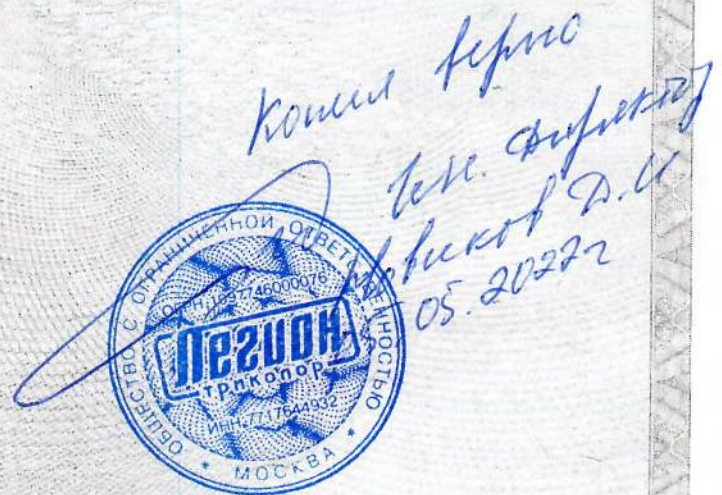 Копия верна
Ген. директор
Новиков Д.И
05.2022г
ОБЩЕСТВО С ОГРАНИЧЕННОЙ ОТВЕТСТВЕННОСТЬЮ
ОГРН 1097746000076
Легион
ТРПКОПОР
ИНН 7717644932
* МОСКВА *